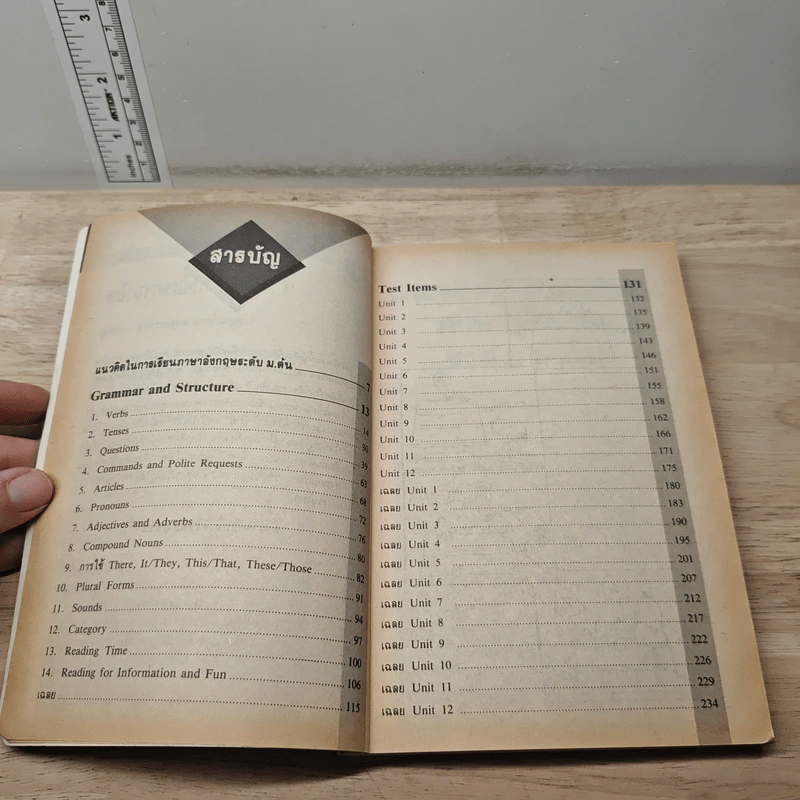 สารบัญ
แนวคิดในการเรียนภาษาอังกฤษระดับ ม.ต้น 7
Grammar and Structure 13
1. Verbs 14
2. Tenses 30
3. Questions 39
4. Commands and Polite Requests 63
5. Articles 68
6. Pronouns 72
7. Adjectives and Adverbs 76
8. Compound Nouns 80
9. การใช้ There, It/They, This/That, These/Those 82
10. Plural Forms 91
11. Sounds 94
12. Category 97
13. Reading Time 100
14. Reading for Information and Fun 106
เฉลย 115
Test Items 131
Unit 1 132
Unit 2 135
Unit 3 139
Unit 4 143
Unit 5 146
Unit 6 151
Unit 7 155
Unit 8 158
Unit 9 162
Unit 10 166
Unit 11 171
Unit 12 175
เฉลย Unit 1 180
เฉลย Unit 2 183
เฉลย Unit 3 190
เฉลย Unit 4 195
เฉลย Unit 5 201
เฉลย Unit 6 207
เฉลย Unit 7 212
เฉลย Unit 8 217
เฉลย Unit 9 222
เฉลย Unit 10 226
เฉลย Unit 11 229
เฉลย Unit 12 234